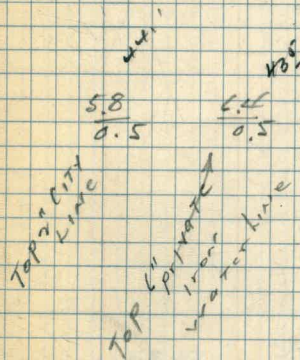 441.
435
5.8
0.5
6.4
0.5
TOP 2" CITY
LINE
TOP 6" private
Iron
water line